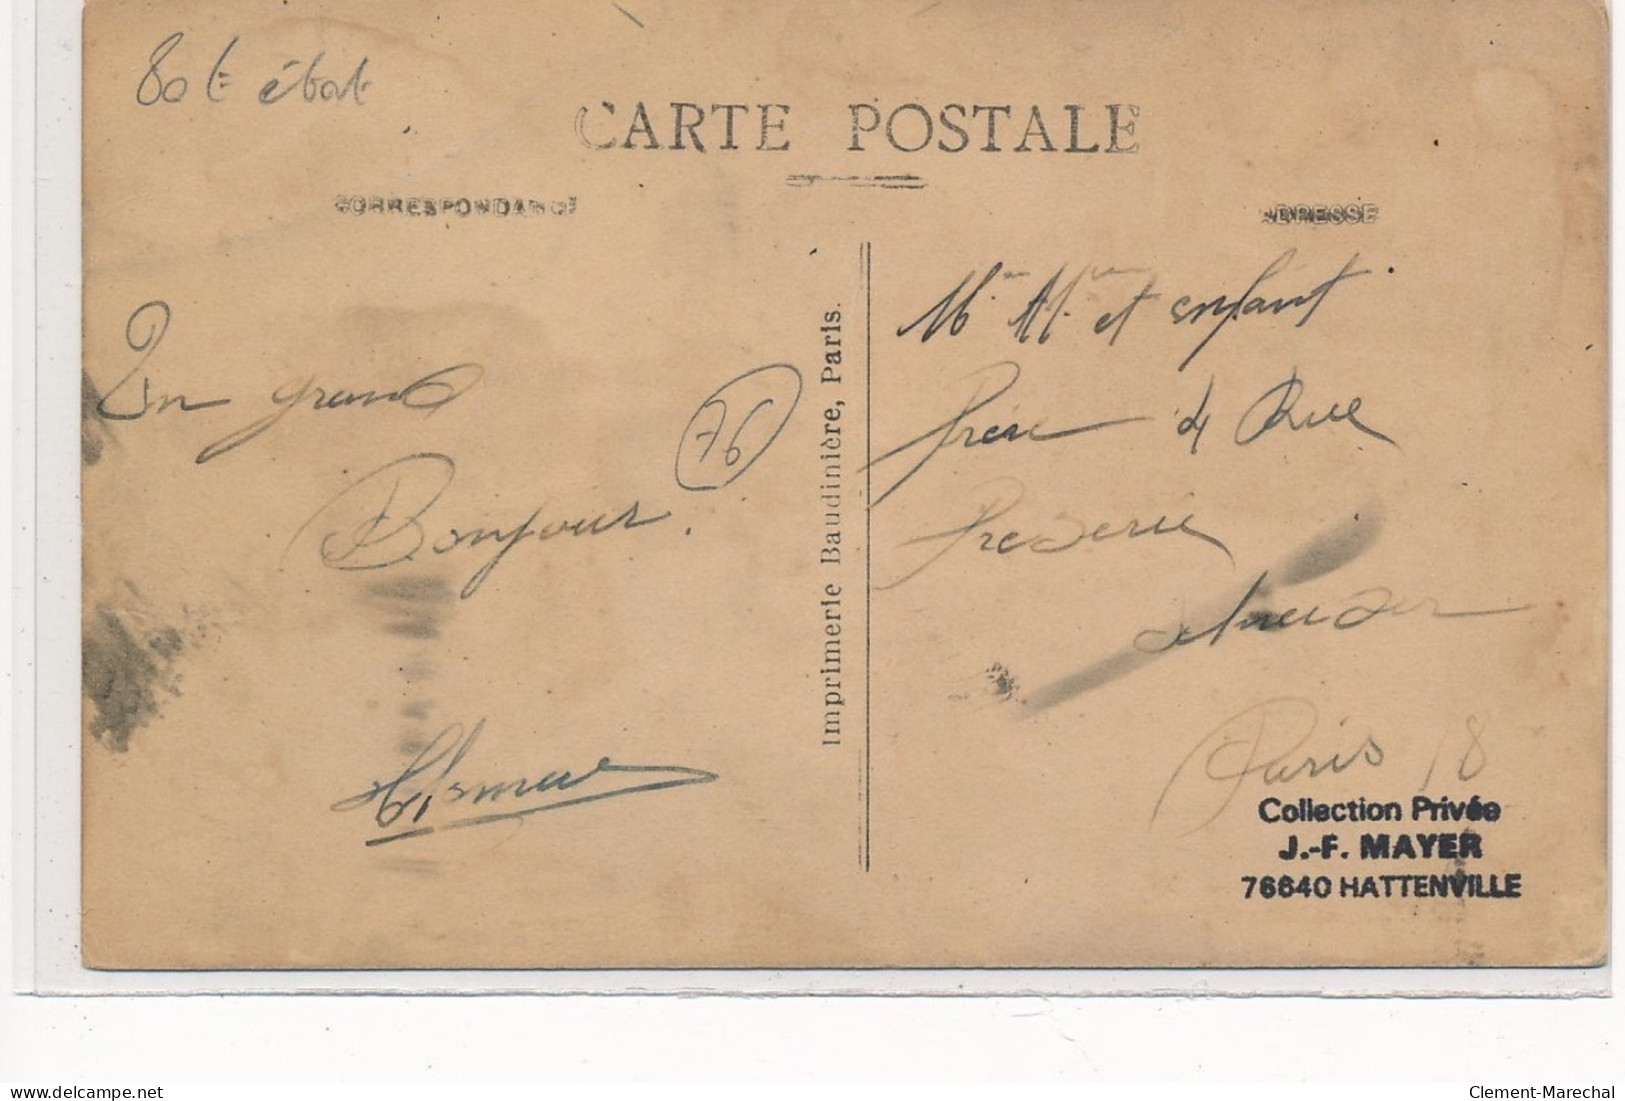 80 € état
CARTE POSTALE
CORRESPONDANCE
ADRESSE
Un grand
Bonjour.
76
Imprimerie Baudinière, Paris.
Mr Mme et enfant
4 Rue
Paris 18
Collection Privée
J.-F. MAYER
76640 HATTENVILLE
delcampe.net
Clement-Marechal